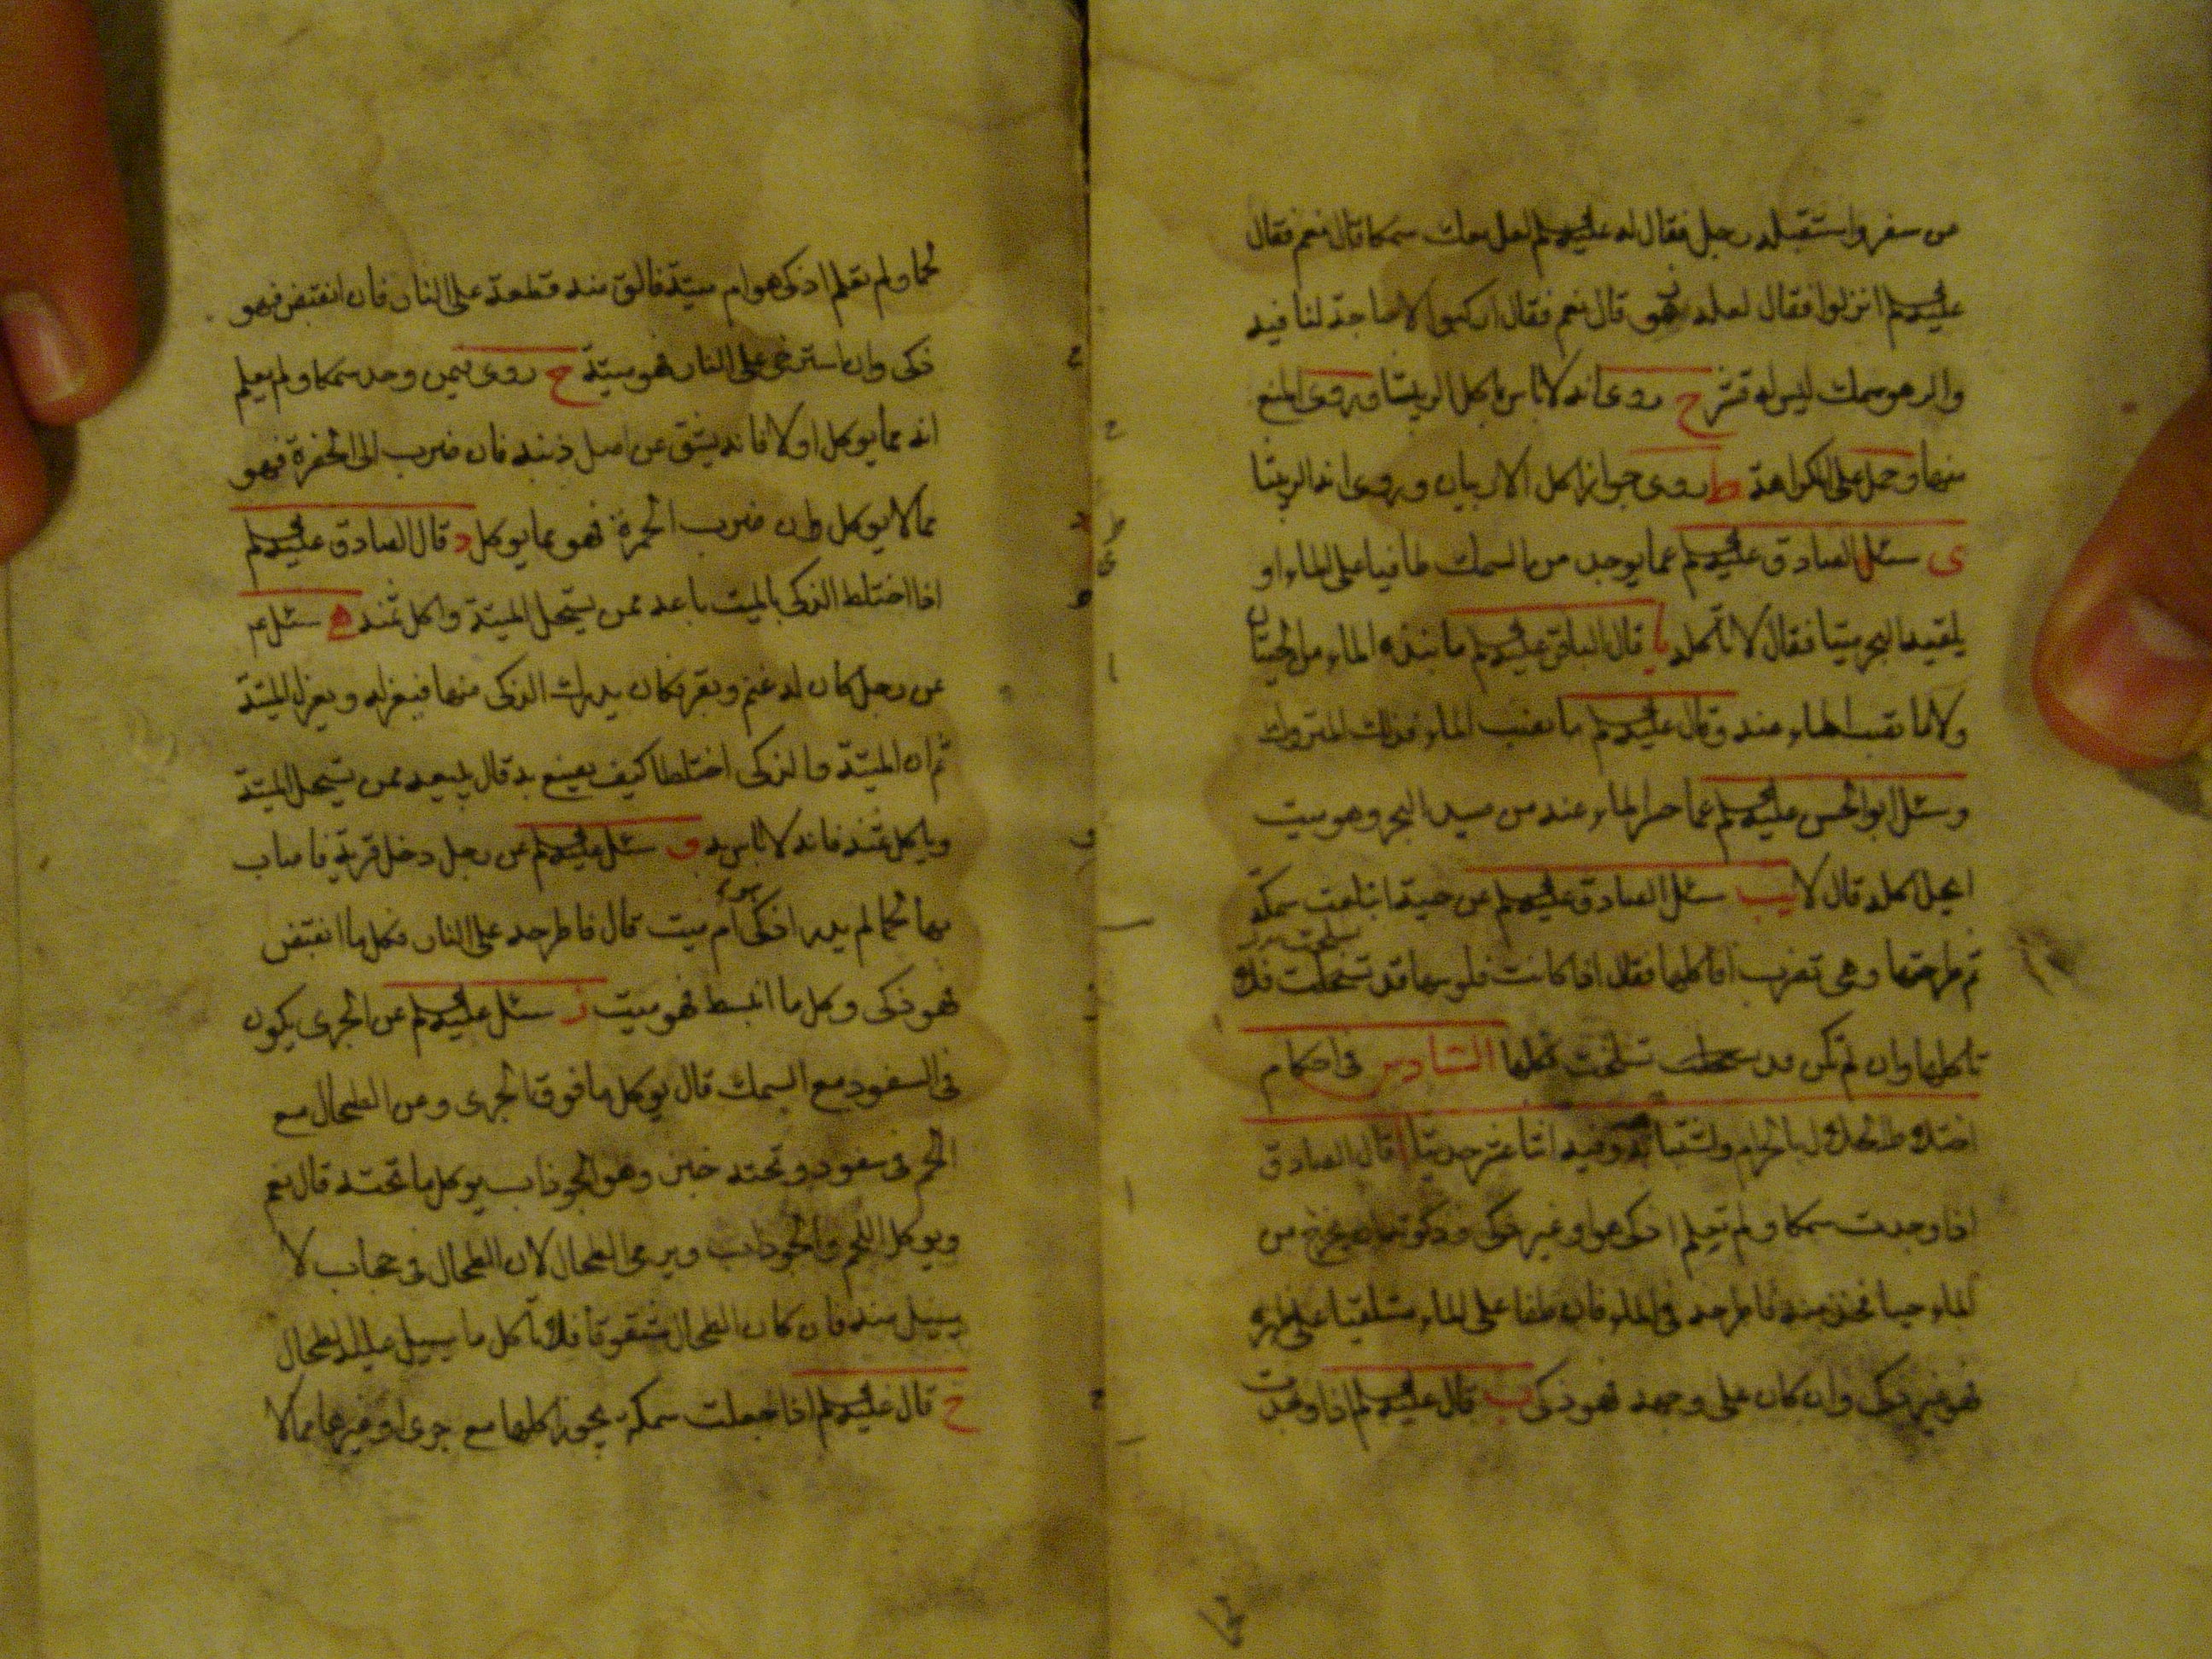 من سفر واستقبله رجل فقال له عليه السلم لعل معك سمكا قال نعم فقال
عليه السلم انزلوا فقال لعله زهو قال نعم فقال اركبوا لا حاجة لنا فيه
والزهو سمك ليس له قشر ح روى انه لا باس باكل الربيثا وروى المنع
منها وحمل على الكراهة ط روى جواز اكل الاربيان وروى انه الربيثا
ى سئل الصادق عليه السلم عما يوجد من السمك طافيا على الماء او
يلقيه البحر ميتا فقال لا تاكله يا قال الباقر عليه السلم ما نبذه الماء من الحيتان
ولا ما نضب الماء عنه وقال عليه السلم ما نضب الماء فذلك المتروك
وسئل ابو الحسن عليه السلم عما حسر الماء عنه من صيد البحر وهو ميت
ايحل اكله قال لا يب سئل الصادق عليه السلم عن حية ابتلعت سمكة
ثم طرحتها وهى تضرب افاكلها فقال اذا كانت فلوسها قد تسخلت فلا
تاكلها وان لم تكن تسلخت فكلها السادس فى احكام
اختلاط الحلال بالحرام واشتباهه وفيه اثنا عشر حديثا ا قال الصادق
اذا وجدت سمكا ولم تعلم اذكى هو او غير ذكى وذكوته ان يخرج من
الماء حيا فخذ منه فاطرحه فى الماء فان طفا على الماء مستلقيا على ظهره
فهو غير ذكى وان كان على وجهه فهو ذكى ب قال عليه السلم اذا وجدت
لحما ولم تعلم اذكى هو ام ميتة فالق منه قطعة على النار فان انقبض فهو
ذكى وان استرخى على النار فهو ميتة ج روى فيمن وجد سمكا ولم يعلم
انه مما يوكل او لا فانه يشق عن اصل ذنبه فان ضرب الى الخضرة فهو
مما لا يوكل وان ضرب الحمرة فهو مما يوكل د قال الصادق عليه السلم
اذا اختلط الذكى بالميت باعه ممن يستحل الميتة واكل ثمنه ه سئل ع
عن رجل كان له غنم وبقر فكان يدرك الذكى منها فيعزله ويعزل الميتة
ثم ان الميتة والذكى اختلطا كيف يصنع به قال يبيعه ممن يستحل الميتة
وياكل ثمنه فانه لا باس به و سئل عليه السلم عن رجل دخل قرية فاصاب
بها لحما لم يدر اذكى هو ام ميت قال فاطرحه على النار فكل ما انقبض
فهو ذكى وكل ما انبسط فهو ميت ز سئل عليه السلم عن الجرى يكون
فى السفود مع السمك قال يوكل ما فوق الجرى وعن الطحال مع
اللحم فى سفود وتحته خبز وهو الجوذاب يوكل ما تحته قال نعم
ويوكل اللحم والجوذاب ويرمى الطحال لان الطحال فى حجاب لا
يسيل منه فان كان الطحال مشقوقا فلا تاكل ما يسيل عليه الطحال
ح قال عليه السلم اذا جعلت سمكة يجوز اكلها مع جرى او غيرها مما لا